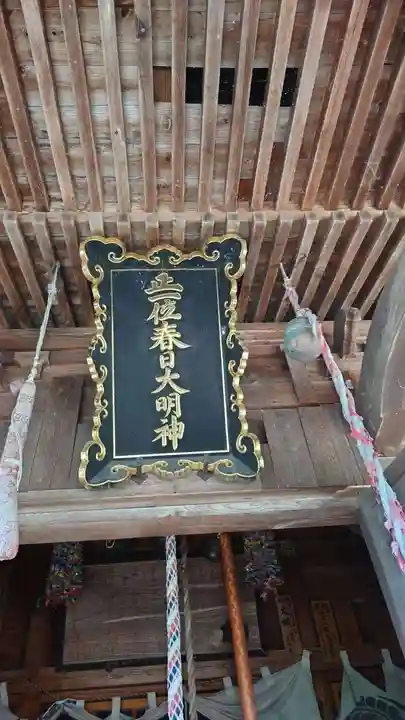 正一位春日大明神